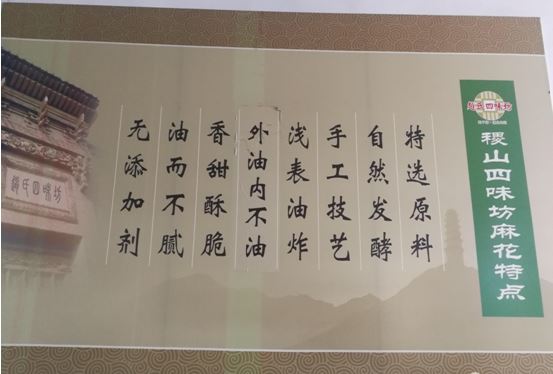 稷山四味坊麻花特点
特选原料
自然发酵
手工技艺
浅表油炸
外油内不油
香甜酥脆
油而不腻
无添加剂